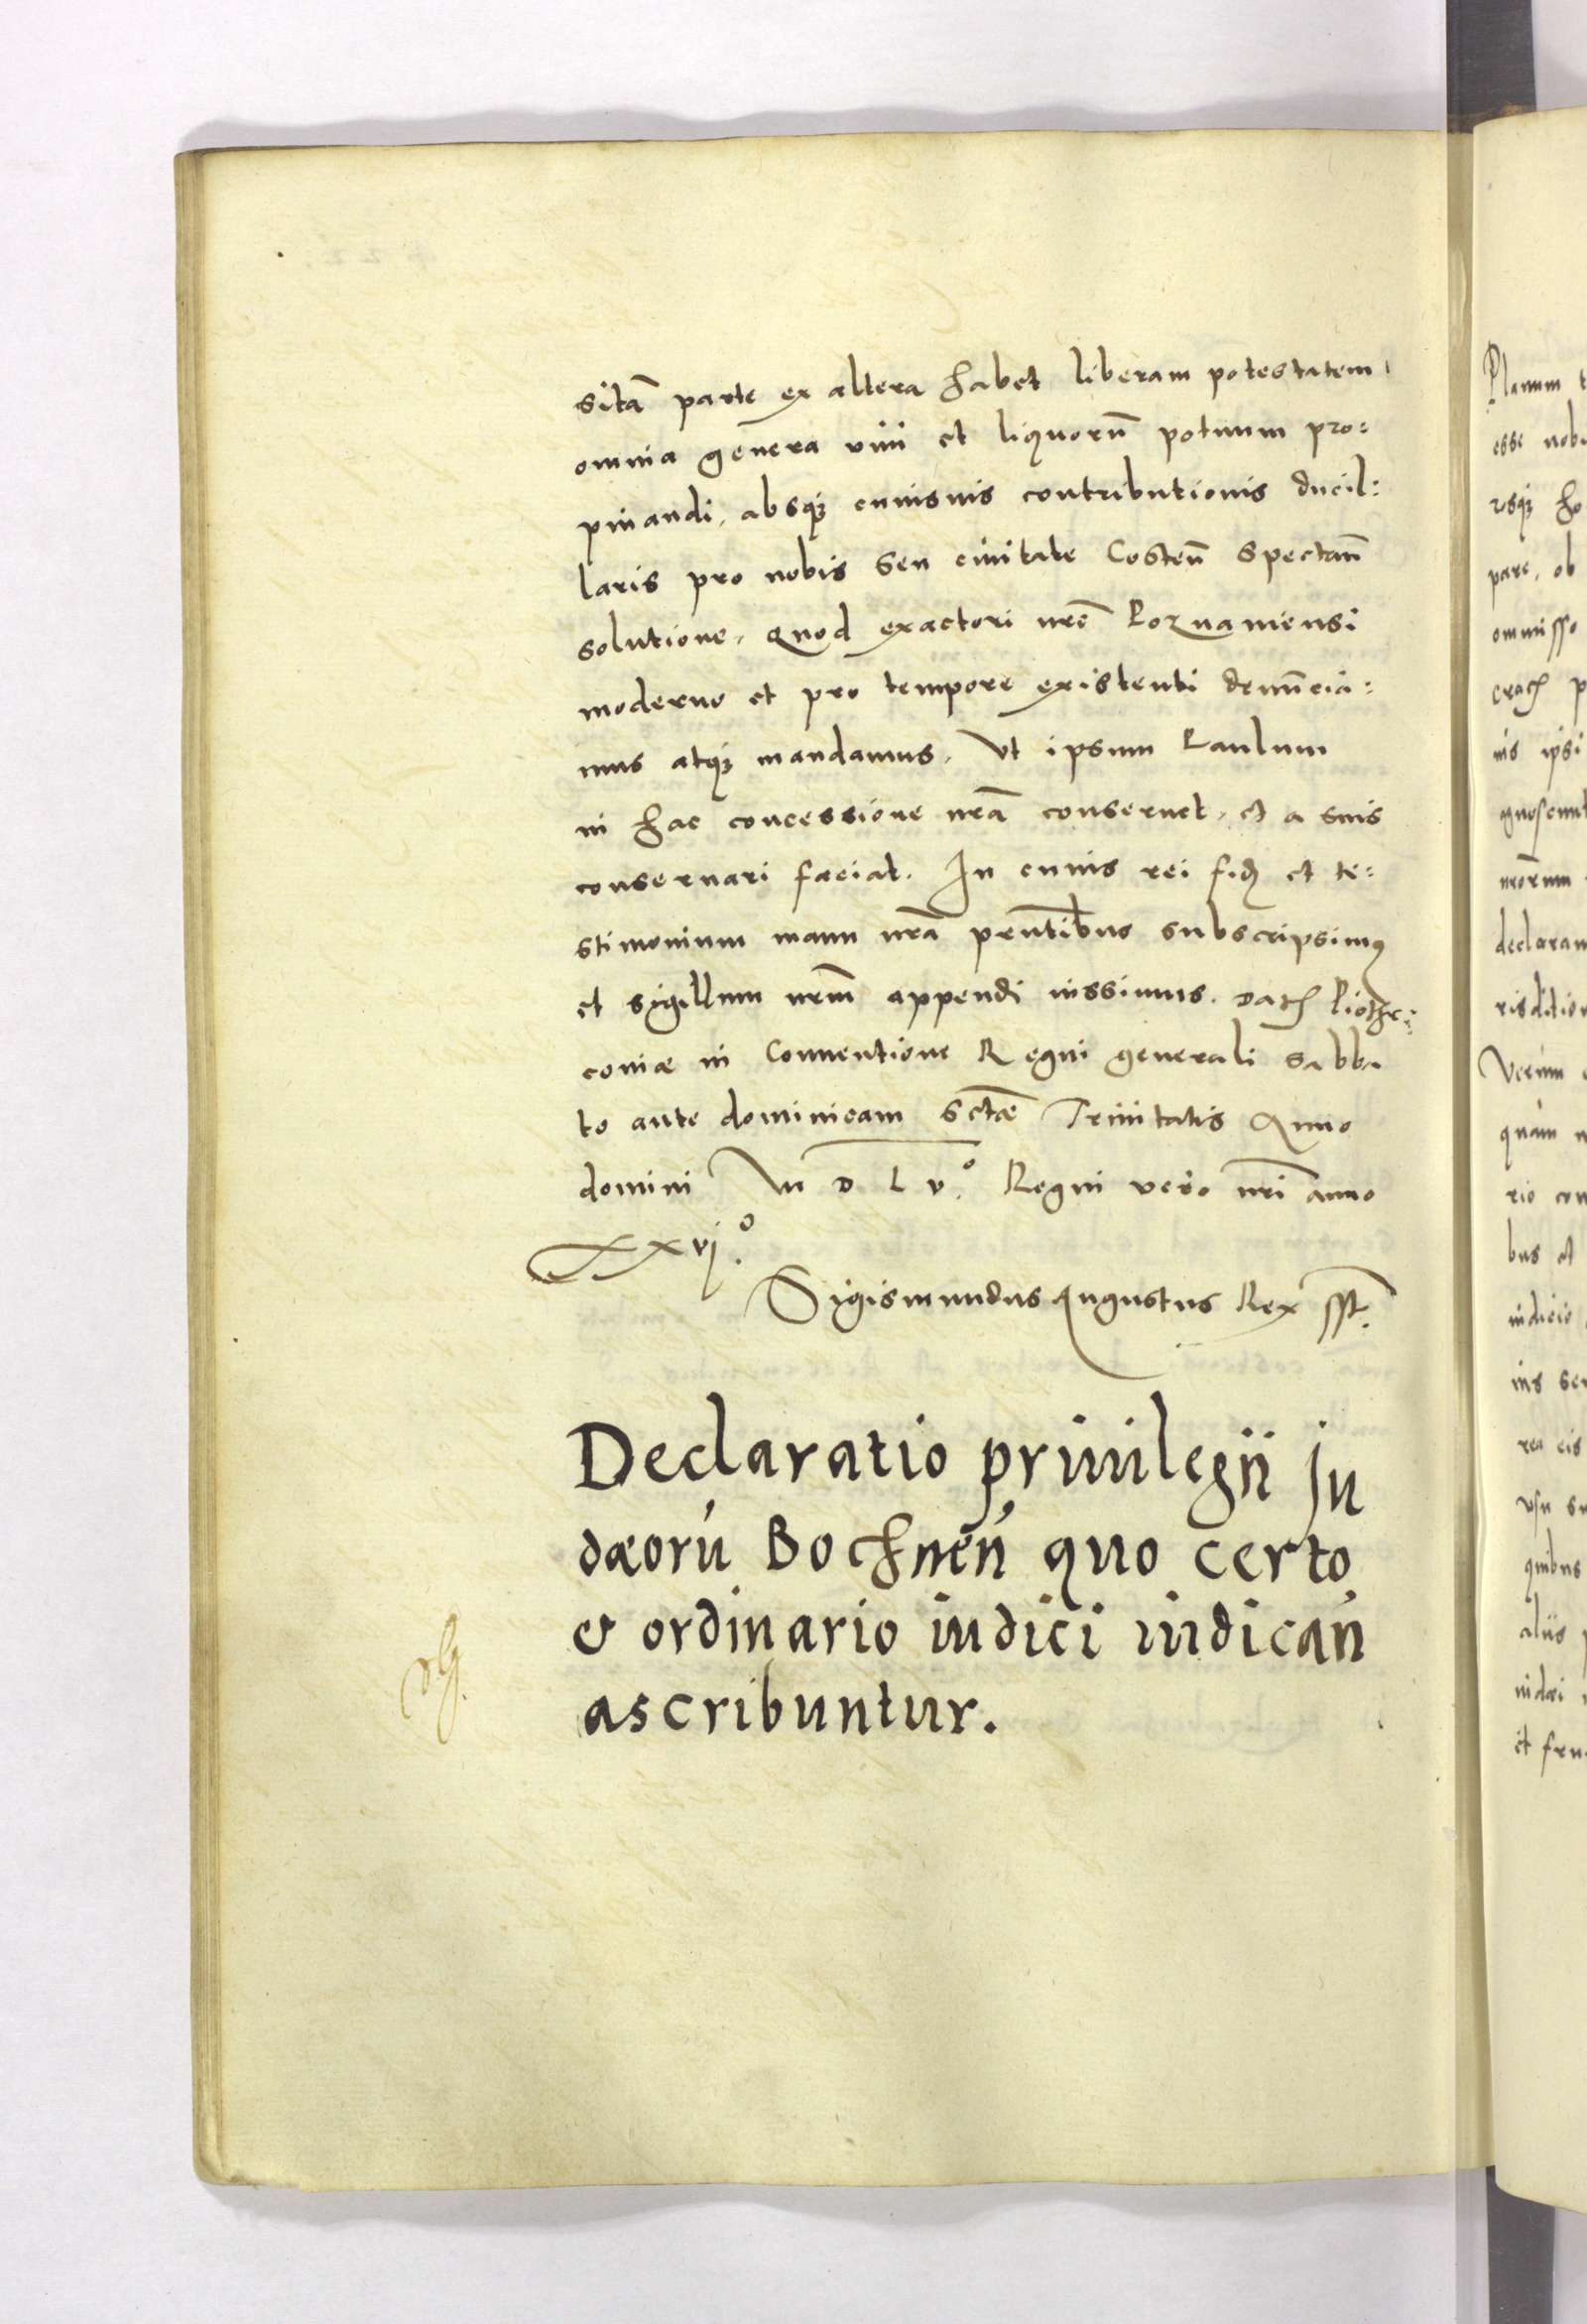 sitã parte ex altera habet liberam potestatem
omnia genera vini et liquorũ potuum pro:
pinandi, absq3 cuiusuis contributionis ducil:
laris pro nobis seu ciuitate Costeñ spectañ
solutione, quod exactori nrõ Poznaniensi
moderno et pro tempore existenti denũcia:
mus atq3 mandamus, Vt ipsum Paulum
in hac concessione nrã conseruet, et a suis
conseruari faciat. In cuius rei fidẽ et te:
stimonium manu nrã prñtibus subscripsimus
et sigillum nrm̃ appendi iussimus. Datũ Piothr:
coviæ in Conuentione Regni generali sabba
to ante dominicam sctæ Trinitatis Anno
domini M D L v.º Regni vero nrĩ anno
xxvj.º
Sigismundus Augustus Rex sst.
Declaratio priuilegii Ju
dæorũ Bochneñ quo certo
et ordinario iudici iudicañ
ascribuntur.
Planum
esse nobi
vsq3 ho
pare, ob
ommisso
eratũ p
nis ipsi
agnoscunt
nrõrum
declaram
risditio
Verum
quam n
rio con
bus et
iudicio
ius se
rea eis
vsu su
quibus
aliis p
iudæi
et fru